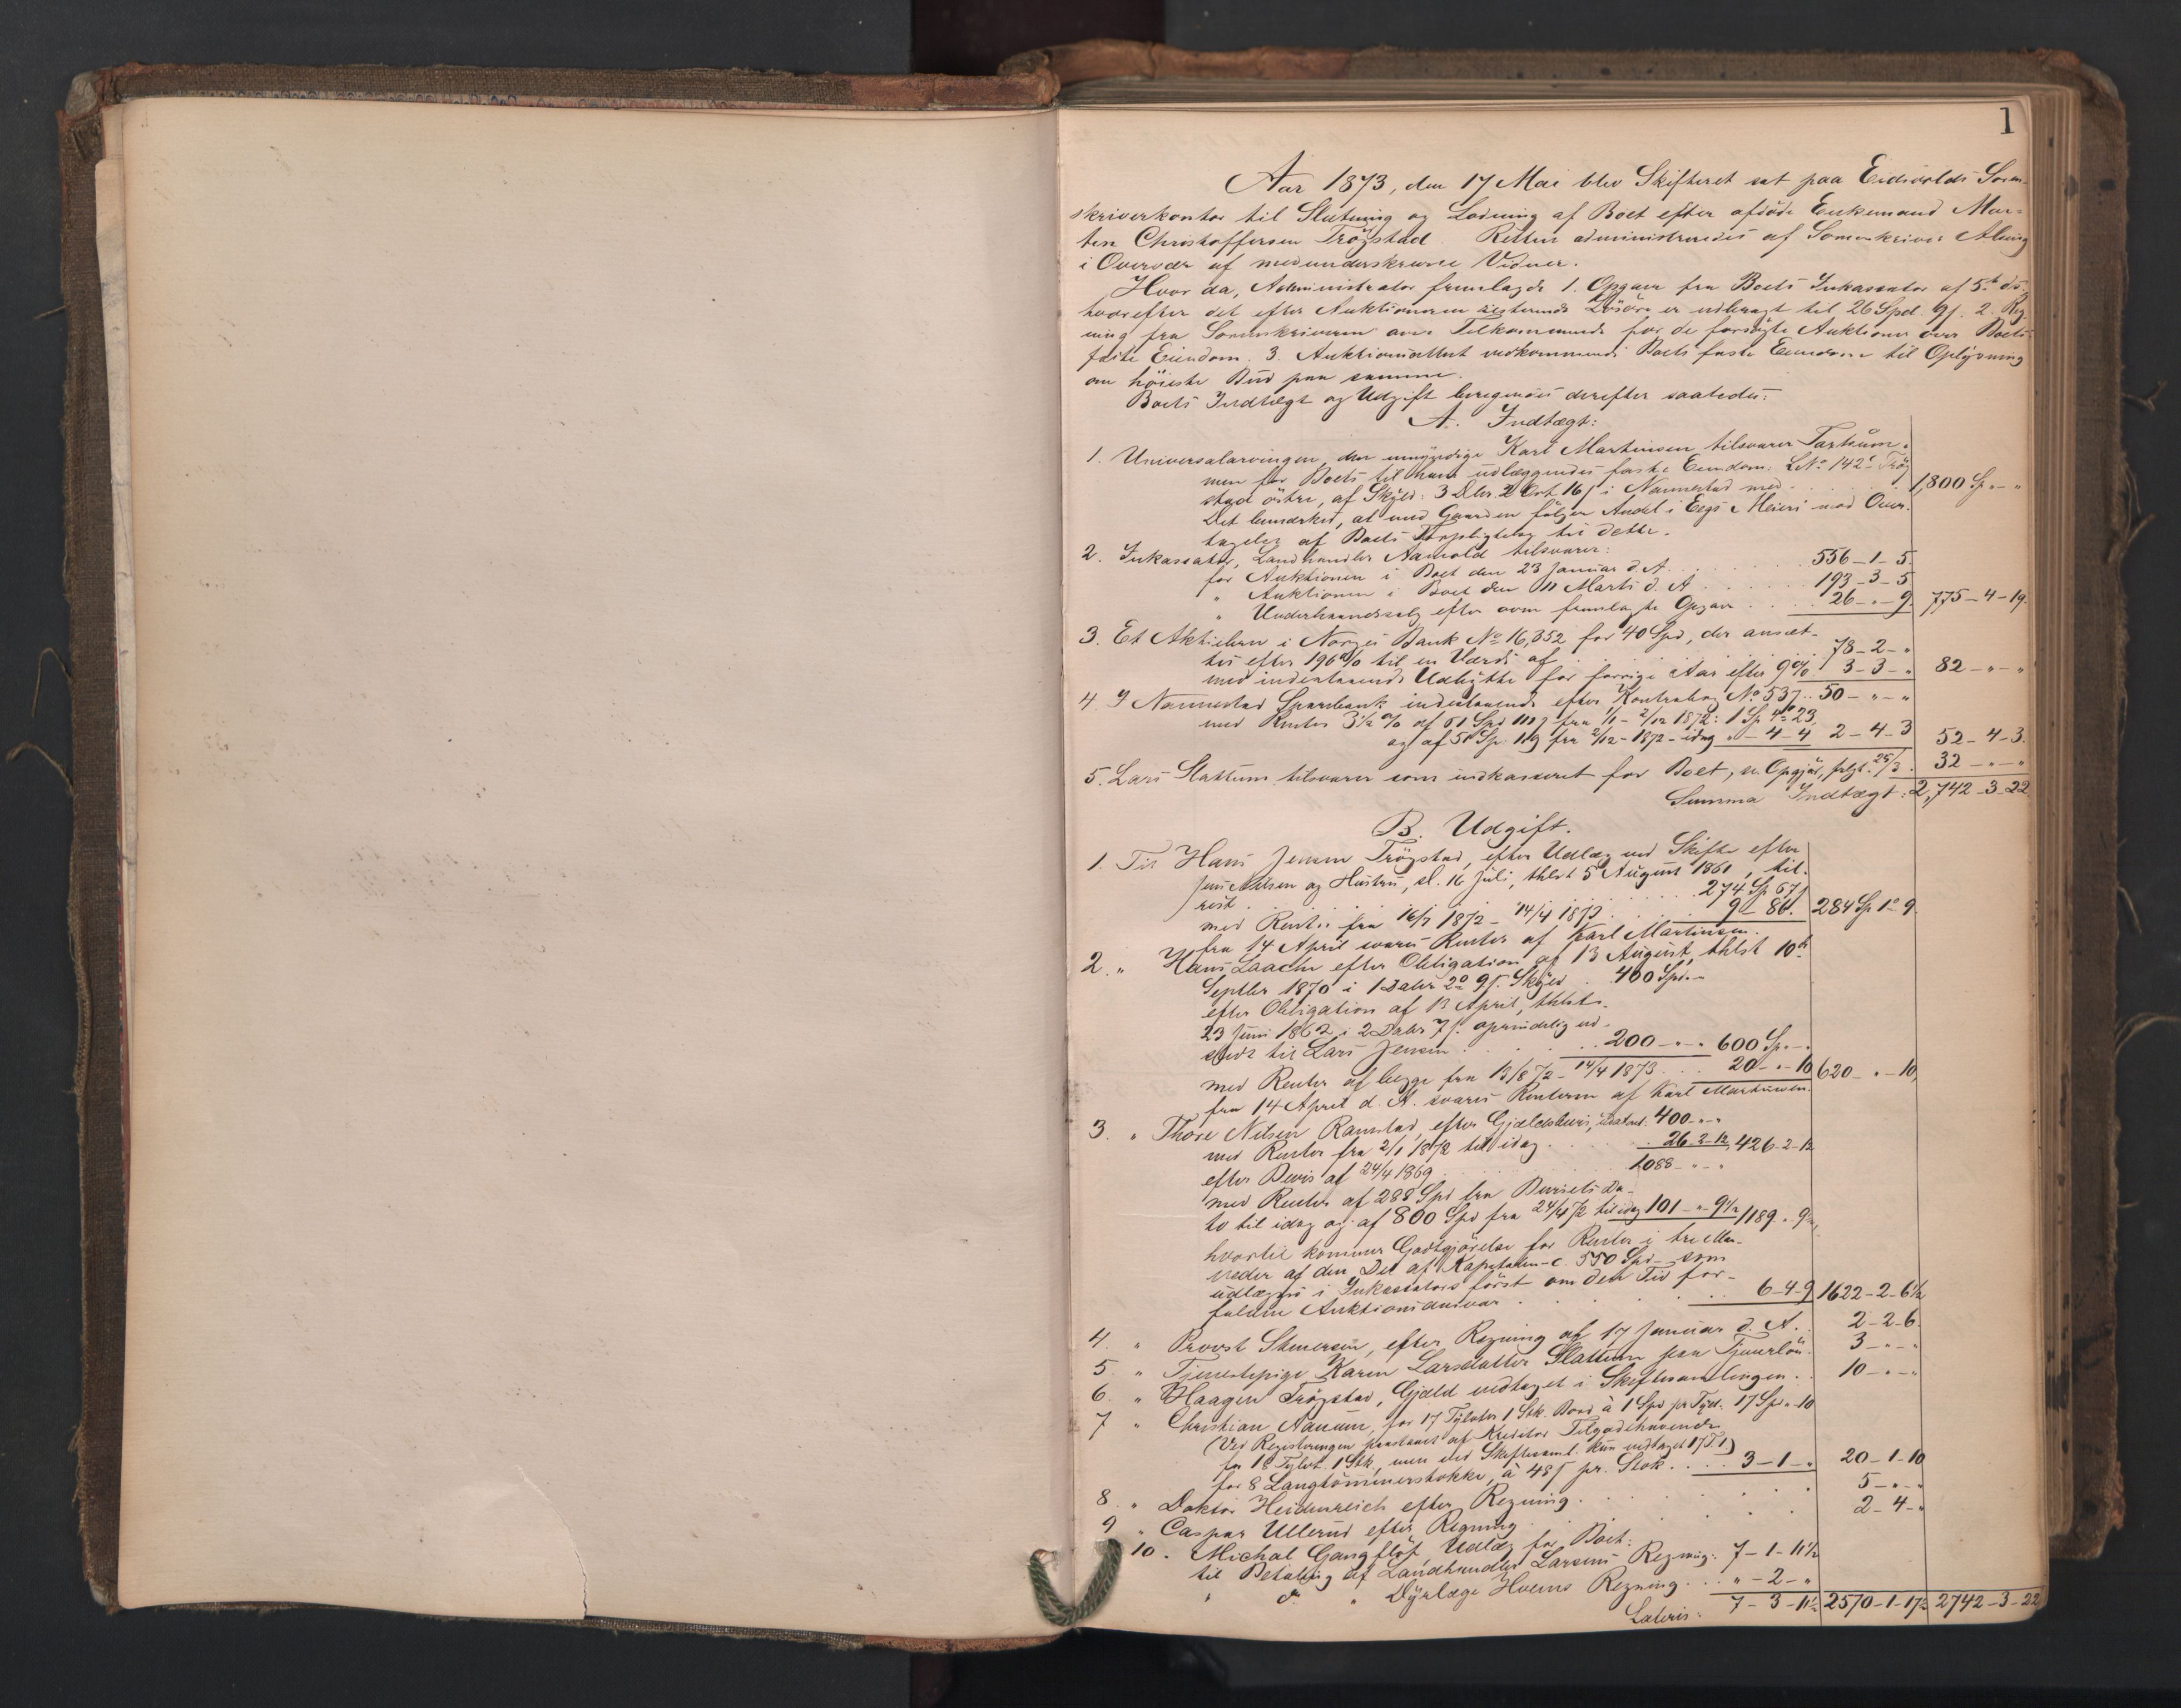 1
Aar 1873, den 17 Mai blev Skifteret sat paa Eidsvolds Soren-
skriverkontor til Slutning og Lodning af Boet efter afdöde Enkemand Mar-
ten Christoffersen Trögstad. Retten administreredes af Sorenskriver Alsing
i Overvær af medunderskrevne Vidner.
Hvor da, Administrator fremlagde 1. Opgave fra Boets Inkassator af 5te ds.
hvorefter det efter Auktionerne resterende Lösöre er udbragt til 26 Spd. 9 s. 2. Reg-
ning fra Sorenskriveren over Tilkommende for de forsögte Auktioner over Boets
faste Eiendom. 3. Auktionsattest vedkommende Boets faste Eiendom til Oplysning
om höieste Bud paa samme.
Boets Indtægt og Udgift beregnedes derefter saaledes:
A. Indtægt:
1. Universalarvingen, den umyndige Karl Martinsen tilsvarer Taxtsum-
men for Boets til ham udlæggendes faste Eiendom: LNo 142c Trög-
stad östre, af Skyld: 3 Dlr. 2 Ort 16 s i Nannestad med . . . 1,800 Sp "-"
Det bemærkes, at med Gaarden fölger Andel i Eegs Meieri mod Over-
tagelse af Boets Forpligtelse til dette.
2. Inkassator, Landhandler Aamold tilsvarer:
for Auktionen i Boet den 23 Januar d. A. . . . 556-1-5.
" Auktionen i Boet den 11 Marts d. A. . . . 193-3-5
" Underhaandssalg efter ovm. fremlagte Opgave . . . 26-"-9. 775-4-19.
3. Et Aktiebrev i Norges Bank No 16,352 for 40 Spd, der ansæt-
tes efter 196% til en Værdi af . . . 78-2-"
med indestaaende Udbytte for forrige Aar efter 9% . 3-3-" 82-"-"
4. I Nannestad Sparebank indestaaende efter Kontrabog No 537 . . 50-"-"
med Renter 3½% af 51 Spd 119 s fra 1/1 - 2/12 1872: 1 Sp 4o 23
og af 50 Sp. 119 fra 2/12-1872 - idag "-4-4 2-4-3 52-4-3.
5. Lars Slattum tilsvarer som indkasseret for Boet, se Opgjör, frlgt. 25/3. 32-"-"
Summa Indtægt: 2,742-3-22
B. Udgift.
1. Til Hans Jensen Trögstad, efter Udlæg ved Skifte efter
Jens Nilsen og Hustru, sl. 16 Juli, thlst 5 August 1861, til-
rest . . . 274 Sp 67 s
med Renter fra 16/7 1872 - 14/4 1873 . . . 9-86. 284 Sp 1o 9.
fra 14 April svares Renter af Karl Martinsen.
2. " Hans Laache efter Obligation af 13 August, thlst 10de
Septbr 1870 i 1 Daler 2o 9 s. Skyld . 400 Spd.-
efter Obligation af 13 April, thlst.
23 Juni 1862 i 2 Daler 7 s. oprindelig ud-
stedt til Lars Jensen . . . 200-"-" 600 Sp.-"
med Renter af begge fra 13/8 72 - 14/4 1873 . . . 20-"-10 620-"-10,
fra 14 April d. A. svares Renterne af Karl Martinsen.
3. " Thore Nilsen Ramstad, efter Gjældsbevis, 400-"-"
med Renter fra 2/1 1872 til idag . . . 26-2-12. 426-2-12
efter Bevis af 24/4 1869 . . . 1088-"-"
med Renter af 288 Spd fra Bevisets Da-
to til idag og af 800 Spd fra 24/4 72 til idag 101-"-9½ 1189 " 9½
hvortil kommer Godtgjörelse for Renter i tre Maa-
neder af den Del af Kapitalen - c. 550 Spd - som
udlægges i Inkassators först om den Tid for-
faldne Auktionsansvar . . . 6-4-9 1622-2-6½
4. " Provst Stenersen, efter Regning af 17 Januar d. A. . 2-2-6.
5. " Tjenestepige Karen Larsdatter Slattum paa Tjenerlön. 3-"-"
6. " Haagen Trögstad, Gjæld vedtaget i Skiftesamlingen. . 10-"-"
7 " Christian Naum, for 17 Tylvter 1 Stk. Bord à 1 Spd pr Tylvt. 17 Spd "-10
(Ved Registreringen paastaaet af Kreditor Tilgodehavende
for 18 Tylvt. 1 Stk, men ved Skiftesaml. kun vedtaget 17 T. 1)
for 8 Langtömmerstokke, à 48 s pr. Stok . . . 3-1-" 20-1-10
8. " Doktor Heidenreich efter Regning. . . . 5-"-"
9 " Caspar Ullerud efter Regning . . . 2-4-"
10. Michal Gangflöt, Udlæg for Boet:
til Betaling af Landhandler Larsens Regning. 7-1-11½
" do " Dyrlæge Hvems Regning. . . "-2-"
Lateris: 7-3-11½ 2570-1-17½ 2742-3-22